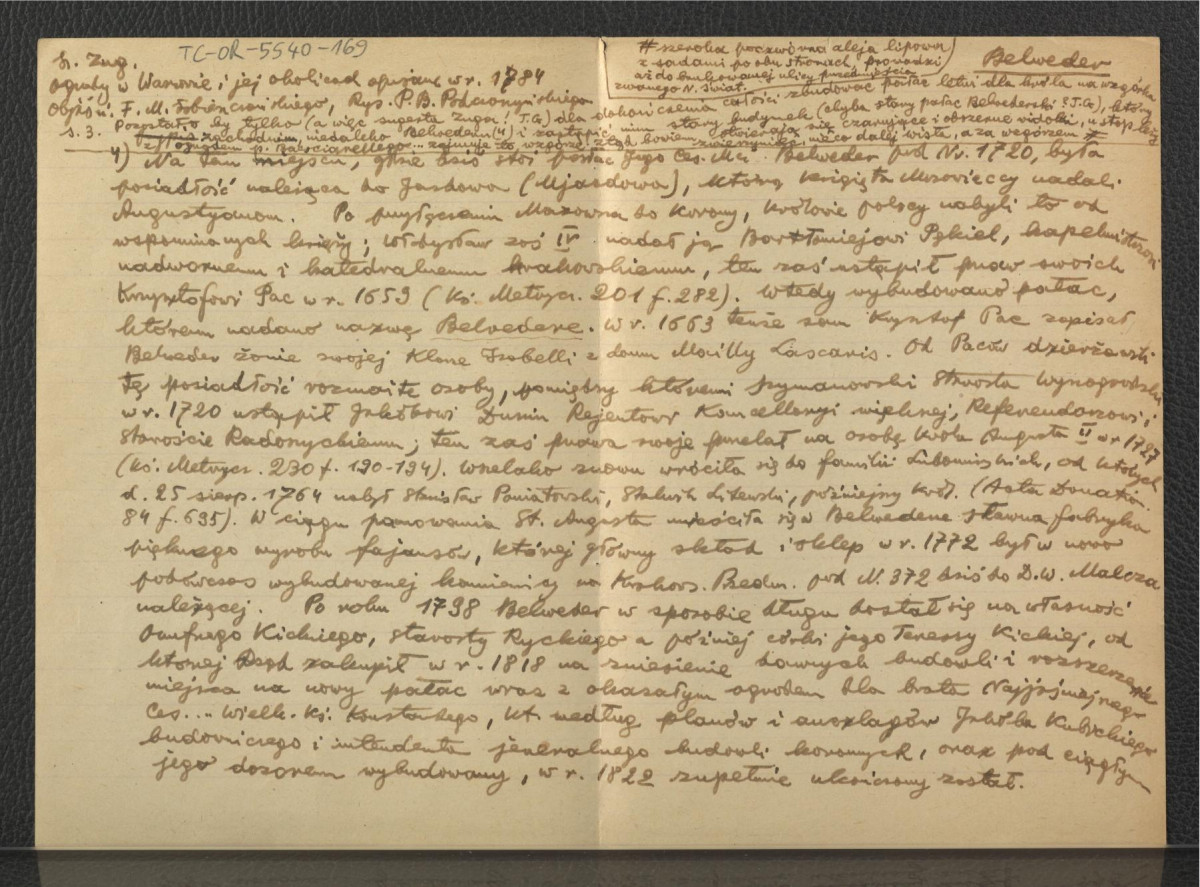 TC-OR-5540-169
Sz. Zug.
ogrody w Warszawie i jej okolicach opisane w r. 1784
objaśn. F. M. Sobieszczańskiego, Rys. P. B. Podczaszyńskiego
s. 3.
Belweder
# szeroka poczwórna aleja lipowa
z sadami po obu stronach, prowadzi
aż do brukowanej ulicy przedmieścia
zwanego N. Świat.
Pozostało by tylko (a więc sugestia Zuga! T.G.) dla dokończenia całości zbudować pałac letni dla króla na wzgórku
nad zachodnim, niedaleko Belwederu (4) i zastąpić nim stary budynek (chyba stary pałac Belwederski! T.G.), który
zajmuje to wzgórze, skąd bowiem otwierają się czarujące i obszerne widoki, u stóp leży
zwierzyniec, nieco dalej Wisła, a za wzgórzem #
4) Na tem miejscu, gdzie dziś stoi pałac Jego Ces. Mci Belweder pod Nr. 1720, była
posiadłość należąca do Jazdowa (Ujazdowa), którą książęta Mazowieccy nadali
Augustyanom. Po przyłączeniu Mazowsza do Korony, królowie polscy nabyli to od
wspominanych księży; Władysław zaś IV nadał ją Bartłomiejowi Pękiel, kapelmistrzowi
nadwornemu i katedralnemu krakowskiemu, ten zaś ustąpił praw swoich
Krzysztofowi Pac w r. 1659 (Ks. Metryc. 201 f. 282). Wtedy wybudowano pałac,
któremu nadano nazwę Belvedere. W r. 1663 tenże sam Krysztof Pac zapisał
Belweder żonie swojej Klarze Izabelli z domu Mailly Lascaris. Od Paców dzierżawili
tę posiadłość rozmaite osoby, pomiędzy któremi Szymanowski Starosta Wyszogrodzki
w r. 1720 ustąpił Jakóbowi Dunin Rejentowi Koncellaryi większej, Referendarzowi i
Staroście Radomskiemu; ten zaś prawa swoje przelał na osobę króla Augusta II w r. 1727
(Ks. Metryc. 230 f. 190-194). Wszelako znowu wróciła się do familii Lubomirskich, od których
d. 25 sierp. 1764 nabył Stanisław Poniatowski, Stolnik Litewski, późniejszy król. (Acta Donation.
84 f. 695). W ciągu panowania St. Augusta mieściła się w Belwederze sławna fabryka
pięknego wyrobu fajansów, której główny skład i sklep w r. 1772 był w nowo
podówczas wybudowanej kamienicy na Krakows. Przedm. pod N. 372 dziś do D.W. Malcza
należącej. Po roku 1798 Belweder w sposobie długu dostał się na własność
Onufrego Kickiego, starosty Ryckiego a później córki jego Teressy Kickiej, od
której Rząd zakupił w r. 1818 na zniesienie dawnych budowli i rozszerzenie
miejsca na nowy pałac wraz z okazałym ogrodem dla brata Najjaśniejszego
Ces... Wielk. Ks. Konstantego, kt. według planów i anszlagów Jakóba Kubickiego
budowniczego i intendenta jeneralnego budowli koronnych, oraz pod ciągłym
jego dozorem wybudowany, w r. 1822 zupełnie ukończony został.